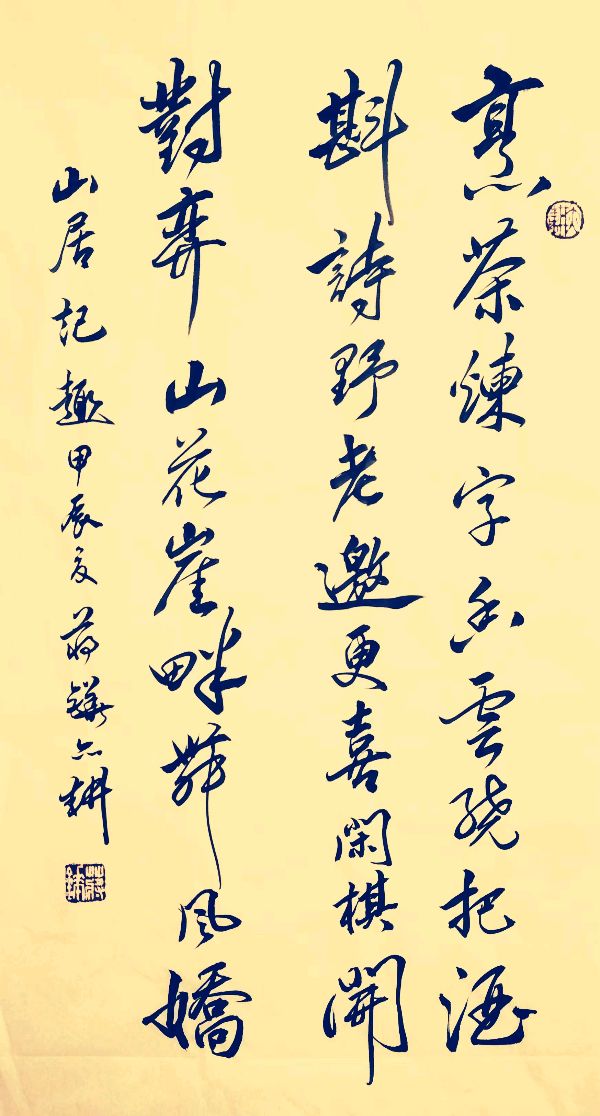 烹茶煉字白雲繞把酒
斟詩野老邀更喜閑棋開
對弈山花崖畔舞風嬌
山居記趣甲辰夏蔣鏵六耕